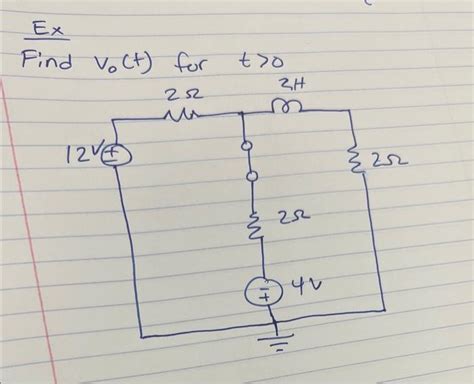 Ex
Find v₀(t) for t>0
2Ω
2H
12V
+
2Ω
2Ω
-
+
4V